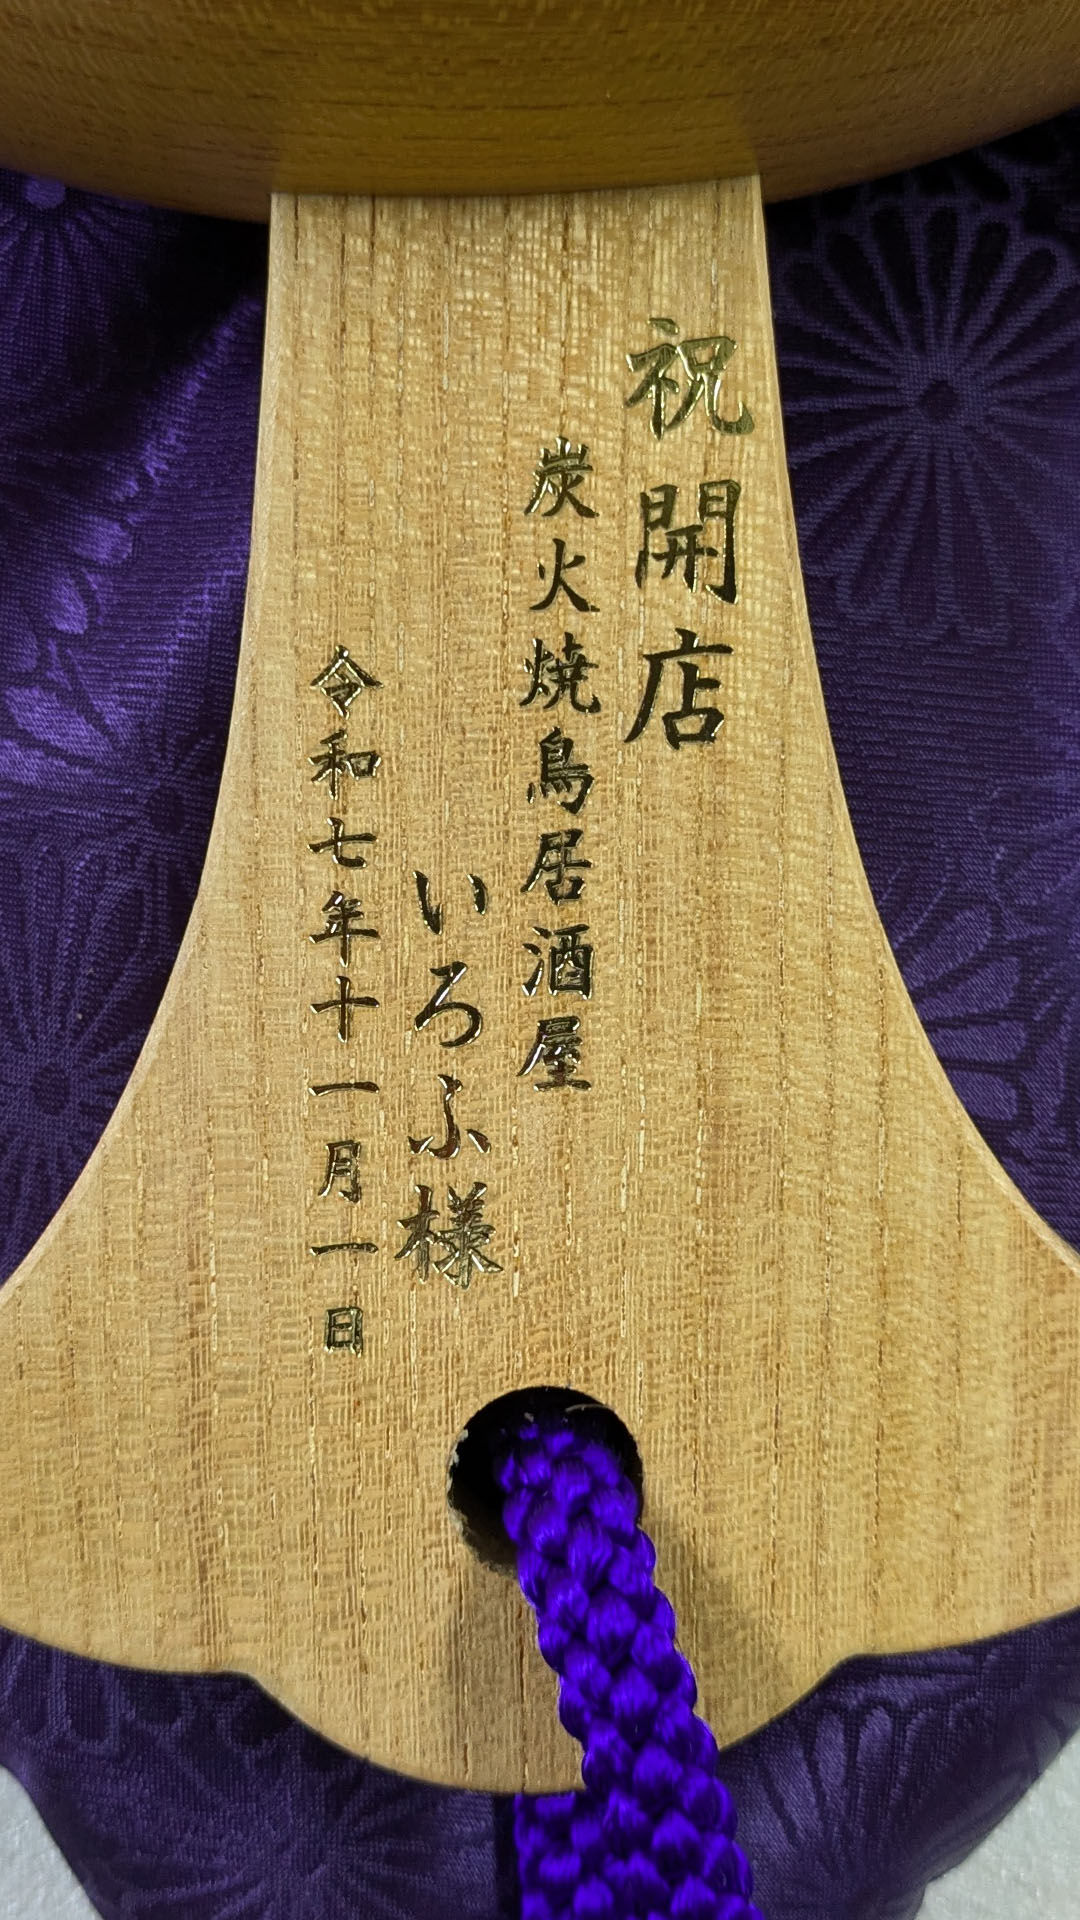 祝開店
炭火焼鳥居酒屋
いろふ様
令和七年十一月一日